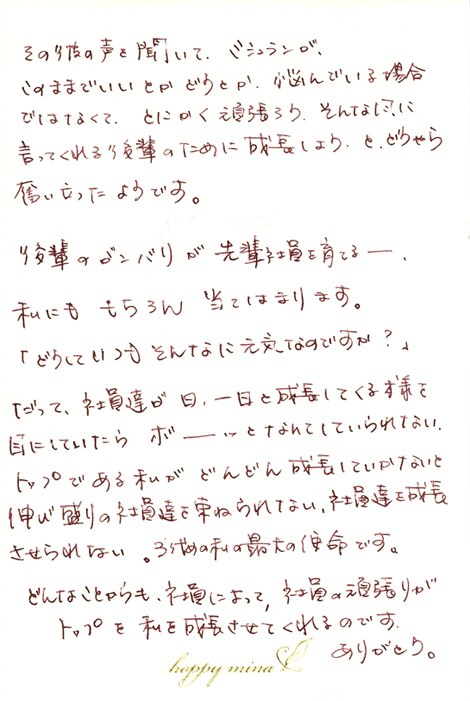 その後の声を聞いて、ミシュランが、
このままでいいとかどうとか、悩んでいる場合
ではなくて、とにかく頑張ろう、そんな風に
言ってくれる後輩のために成長しよう、と、どうやら
奮い立ったようです。
後輩のガンバリが先輩社員を育てるー、
私にももちろん当てはまります。
「どうしていつもそんなに元気なのですか?」
だって、社員達が日、一日と成長してくる様を
目にしていたらボーーッとなんてしていられない。
トップである私がどんどん成長していかないと
伸び盛りの社員達を束ねられない、社員達を成長
させられない。の私の最大の使命です。
どんなことからも、社員によって、社員の頑張りが
トップを私を成長させてくれるのです。
ありがとう。
happy mina